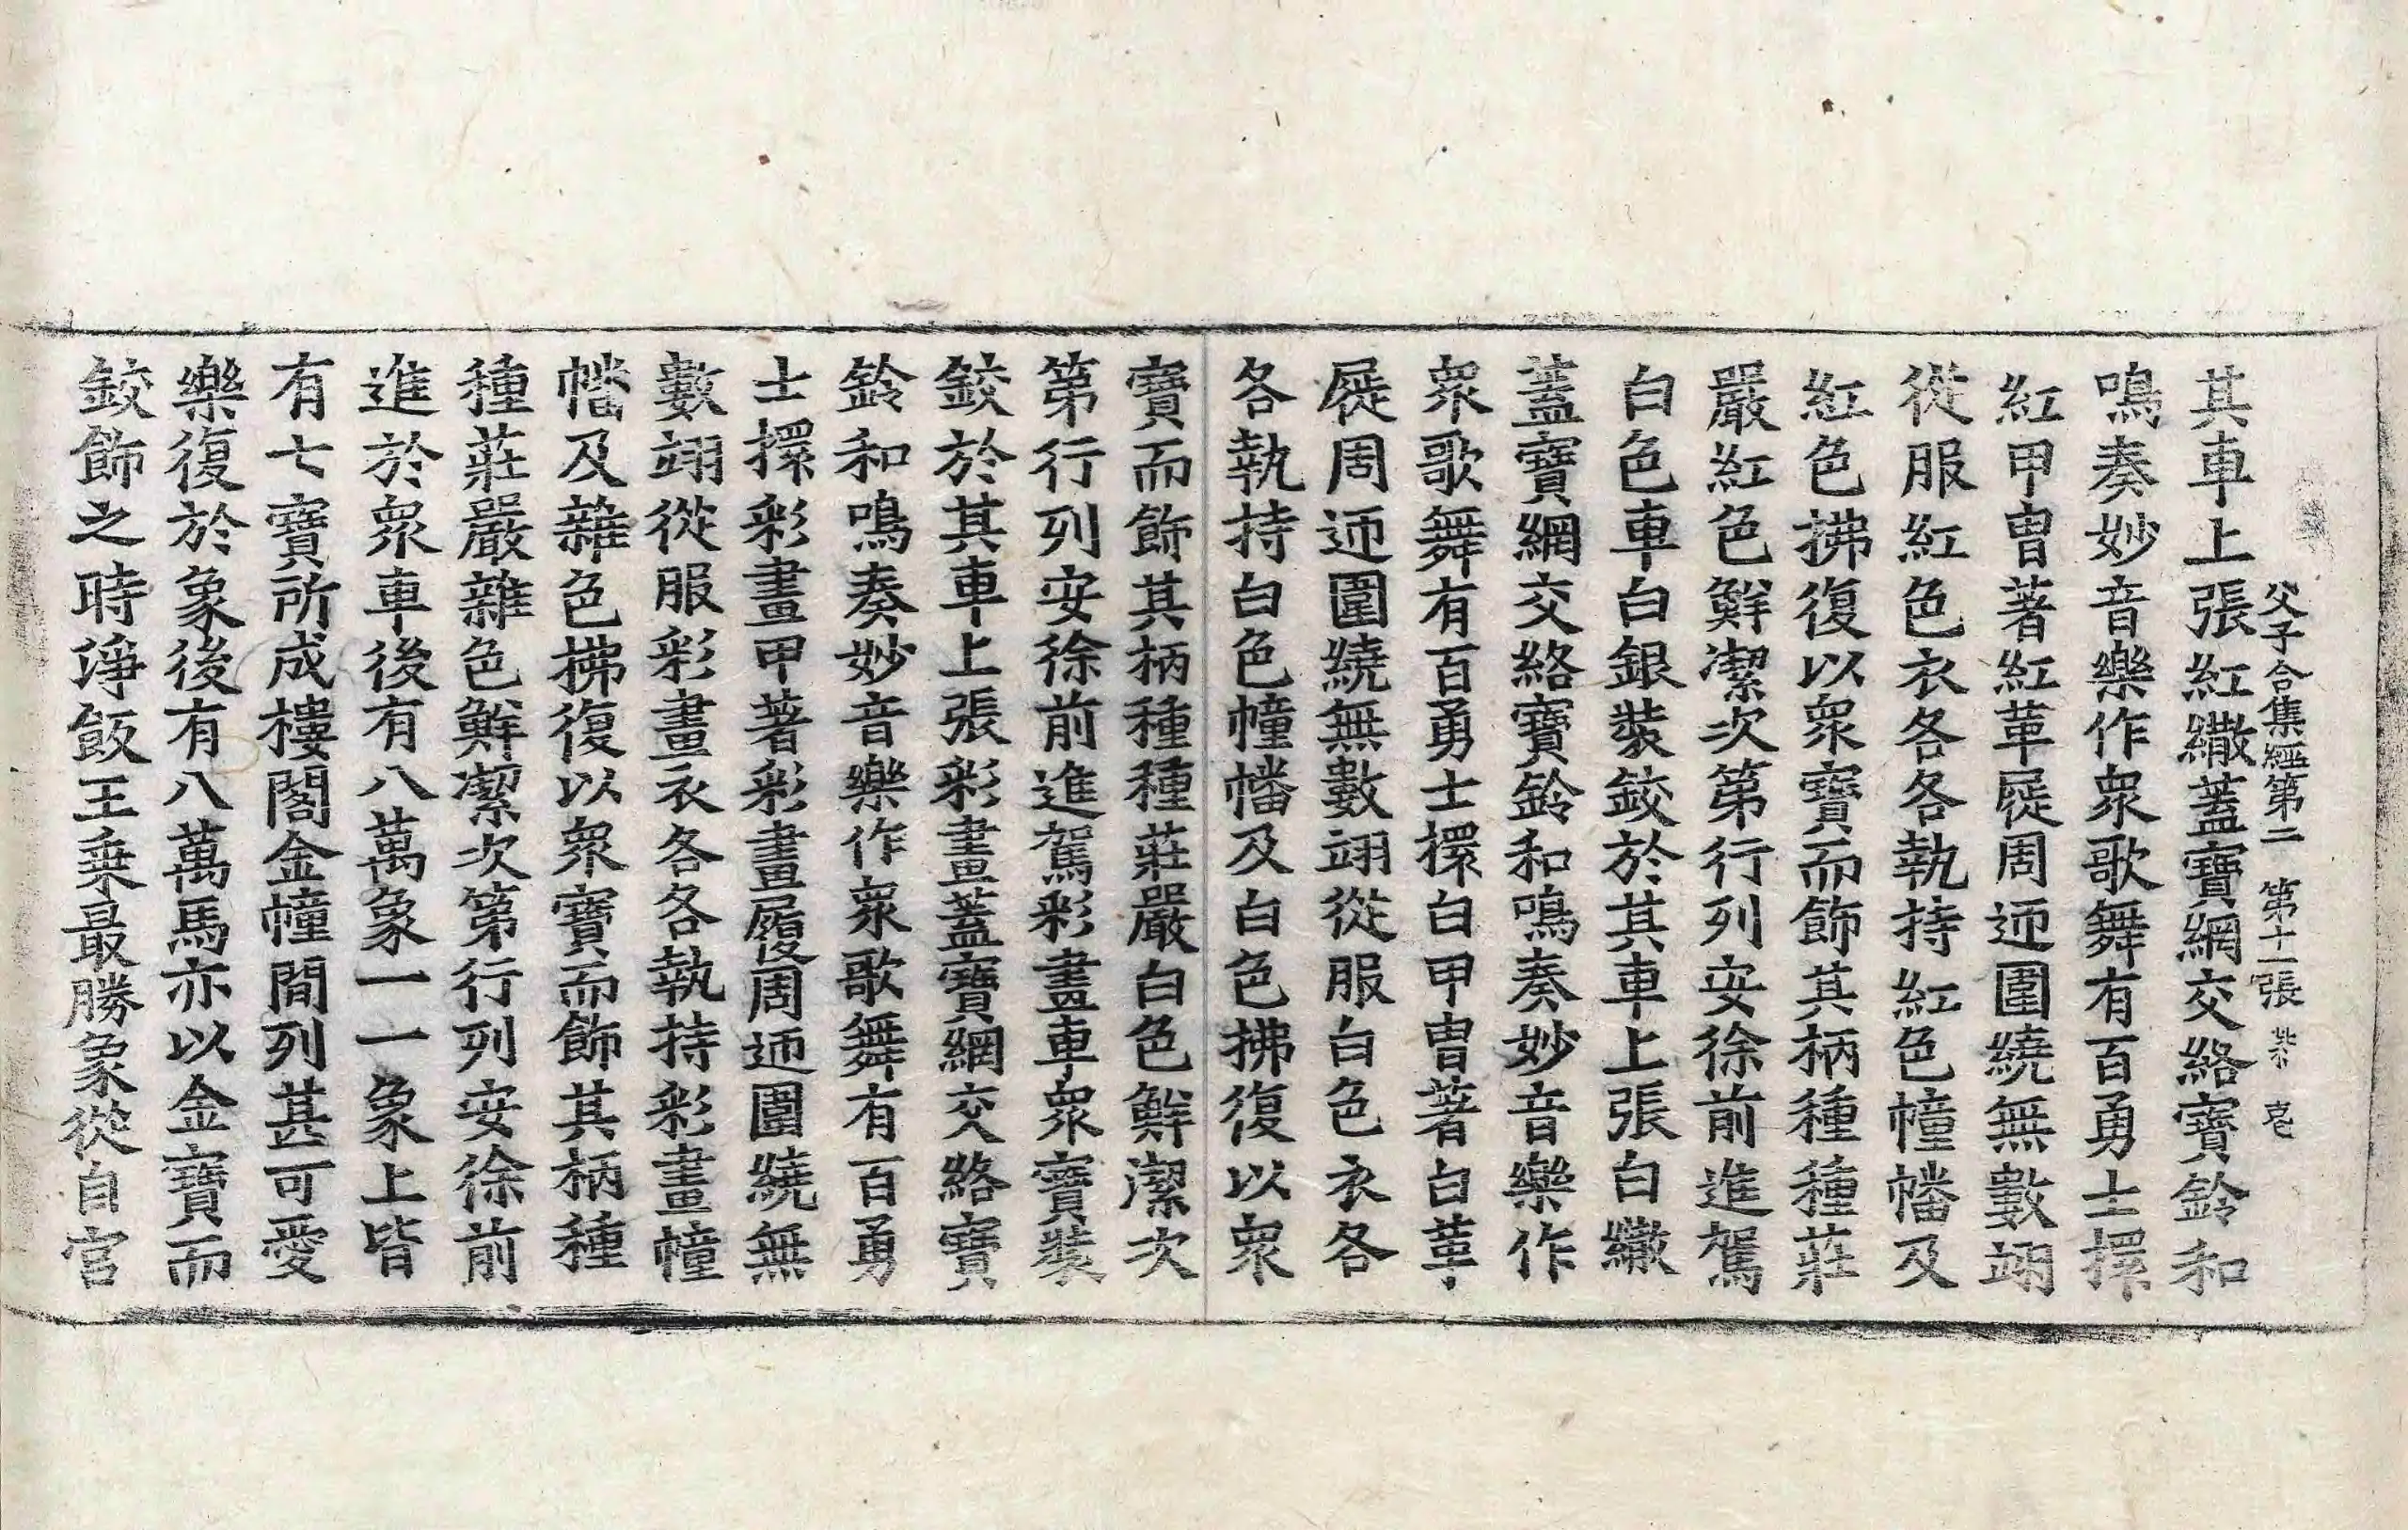 父子合集經第二 第十一張
其車上張紅繖蓋寶網交絡寶鈴和
鳴奏妙音樂作衆歌舞有百勇士擐
紅甲冑著紅革屣周迊圍繞無數翊
從服紅色衣各各執持紅色幢幡及
紅色拂復以衆寶而飾其柄種種莊
嚴紅色鮮潔次第行列安徐前進駕
白色車白銀裝鉸於其車上張白繖
蓋寶網交絡寶鈴和鳴奏妙音樂作
衆歌舞有百勇士擐白甲冑著白革
屣周迊圍繞無數翊從服白色衣各
各執持白色幢幡及白色拂復以衆
寶而飾其柄種種莊嚴白色鮮潔次
第行列安徐前進駕彩畫車衆寶裝
鉸於其車上張彩畫蓋寶網交絡寶
鈴和鳴奏妙音樂作衆歌舞有百勇
士擐彩畫甲著彩畫履周迊圍繞無
數翊從服彩畫衣各各執持彩畫幢
幡及雜色拂復以衆寶而飾其柄種
種莊嚴雜色鮮潔次第行列安徐前
進於衆車後有八萬象一一象上皆
有七寶所成樓閣金幢間列甚可愛
樂復於象後有八萬馬亦以金寶而
鉸飾之時淨飯王乗最勝象從自宮